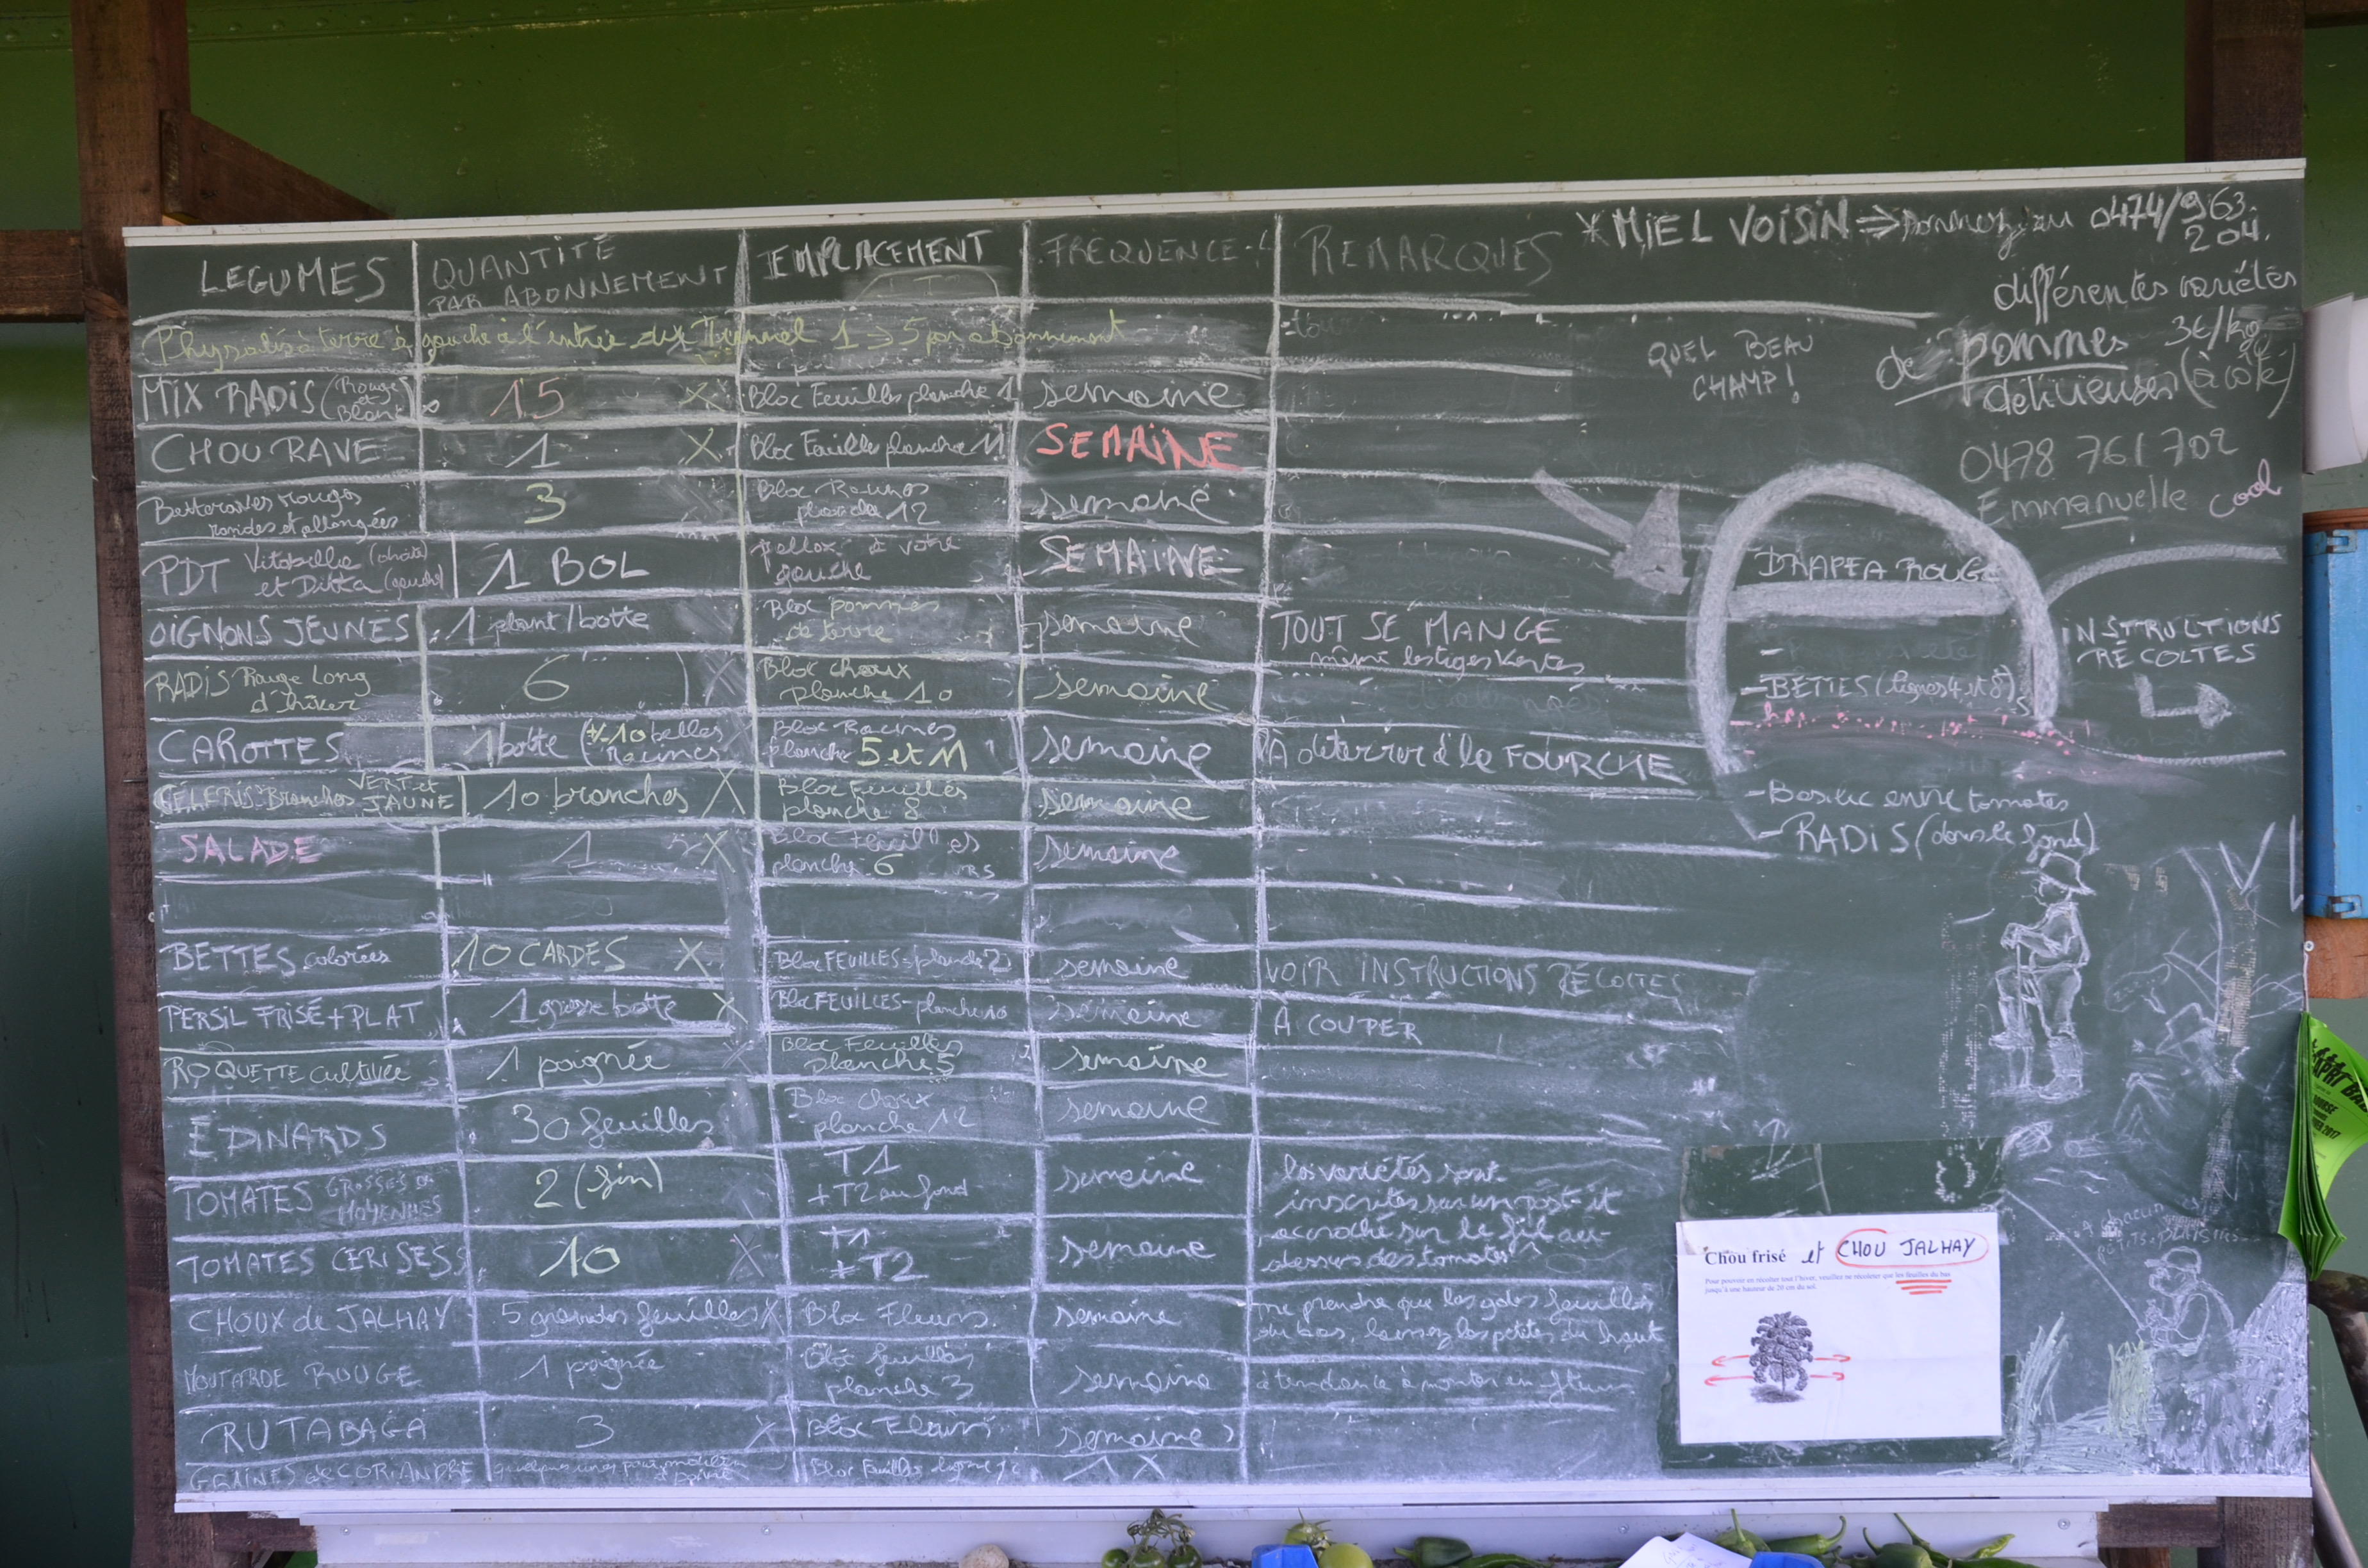 LEGUMES QUANTITÉ PAR ABONNEMENT EMPLACEMENT FRÉQUENCE REMARQUES
* MIEL VOISIN ⇒ 0474/963.204.
Physalis à terre à gauche à l'entrée du Tunnel 1 → 5 par abonnement
MIX RADIS (Rouge et Blanc) 15 X Bloc Feuilles planche 1 semaine
CHOU RAVE 1 X Bloc Feuilles planche 11 SEMAINE
Betteraves rouges rondes et allongées 3 Bloc Racines planche 12 semaine
PDT Vitabella (droite) et Ditta (gauche) 1 BOL pallox à votre gauche SEMAINE
OIGNONS JEUNES 1 plant/botte Bloc pommes de terre semaine TOUT SE MANGE même les tiges vertes
RADIS Rouge Long d'hiver 6 X Bloc choux planche 10 semaine
CAROTTES 1 botte (+/- 10 belles Racines Bloc Racines planche 5 et 11 semaine À déterrer à la FOURCHE
CÉLERIS Branches VERT et JAUNE 10 branches X Bloc Feuilles planche 8 semaine
SALADE 1 X Bloc Feuilles planche 6 semaine
BETTES colorées 10 CARDES X Bloc FEUILLES - planche 2 semaine VOIR INSTRUCTIONS RÉCOLTES
PERSIL FRISÉ + PLAT 1 grosse botte X Bloc FEUILLES - planche 10 semaine À COUPER
ROQUETTE cultivée 1 poignée X Bloc Feuilles planche 5 semaine
ÉPINARDS 30 feuilles Bloc choux planche 12 semaine
TOMATES GROSSES OU MOYENNES 2 (fin) T1 + T2 au fond semaine
les variétés sont
inscrites sur un post-it
accroché sur le fil au-
dessus des tomates
TOMATES CERISES 10 X T1 + T2 semaine
CHOUX de JALHAY 5 grandes feuilles X Bloc Fleurs semaine
ne prendre que les feuilles
du bas, laissez les petites du haut
MOUTARDE ROUGE 1 poignée Bloc feuilles planche 3 semaine à tendance à monter en fleur
RUTABAGA 3 X Bloc Fleurs semaine
GRAINES de CORIANDRE quelques unes pour moulin à poivre Bloc Feuilles
QUEL BEAU
CHAMP!
différentes variétés
de pommes 3€/kg
délicieuses (à côté)
0478 761 702
Emmanuelle cool
DRAPEA ROUGE
- BETTES (lignes 4 et 8)
INSTRUCTIONS
RÉCOLTES
- Basilic entre tomates
- RADIS (dans le fond)
Chou frisé et CHOU JALHAY
Pour pouvoir en récolter tout l'hiver, veuillez ne récolter que les feuilles du bas
jusqu'à une hauteur de 20 cm du sol.
À chacun
PETITS PLAISIRS